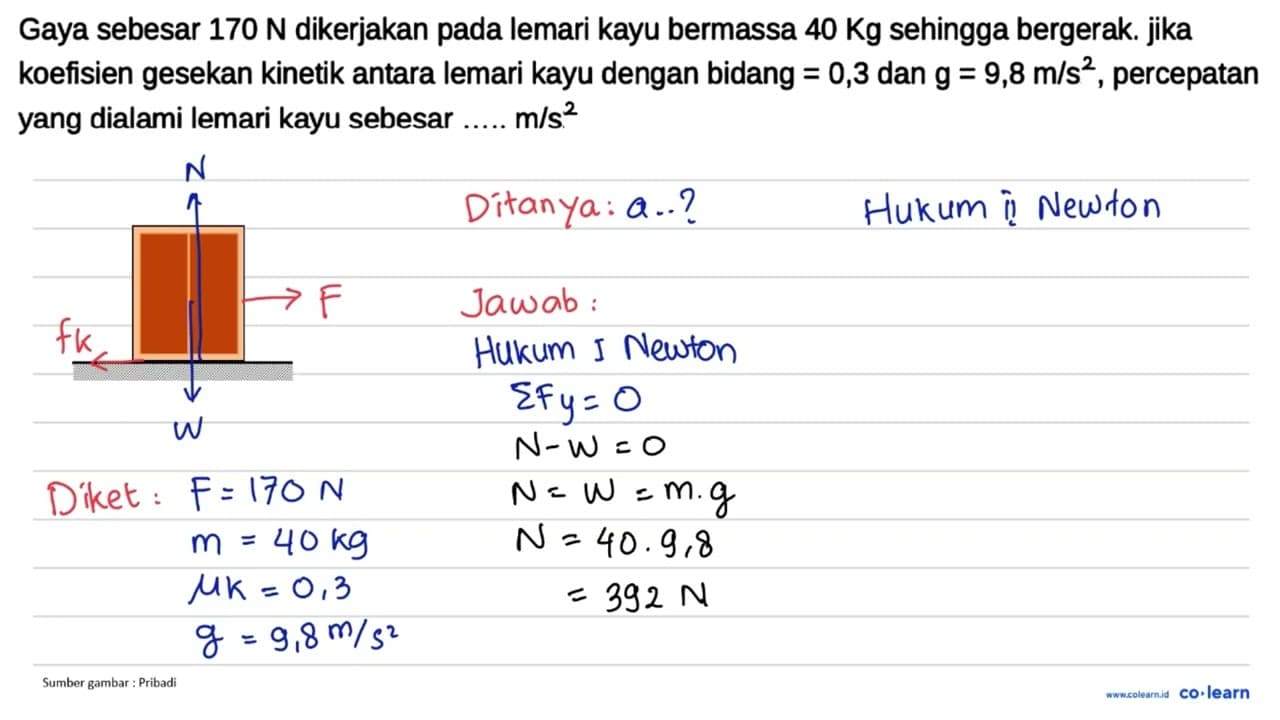 Gaya sebesar 170 N dikerjakan pada lemari kayu bermassa 40 Kg sehingga bergerak. jika
koefisien gesekan kinetik antara lemari kayu dengan bidang = 0,3 dan g = 9,8 m/s², percepatan
yang dialami lemari kayu sebesar ..... m/s²
N
F
fk
W
Diket : F = 170 N
m = 40 kg
μk = 0,3
g = 9,8 m/s²
Ditanya : a..?
Jawab :
Hukum I Newton
ΣFy = 0
N - W = 0
N = W = m.g
N = 40 . 9,8
= 392 N
Hukum II Newton
Sumber gambar : Pribadi
www.colearn.id co·learn